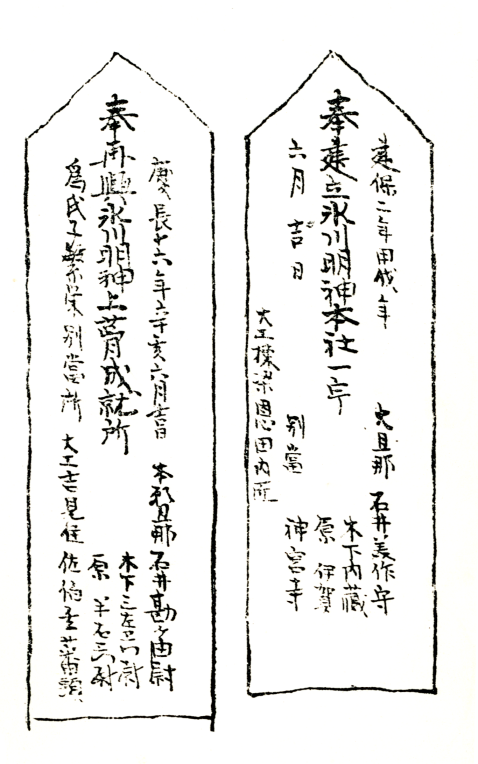 建保二年甲戌年
奉建立氷川明神本社一宇
六月吉日
大旦那 石井美作守
木下内蔵
原 伊賀
別當 神宮寺
大工棟梁恩田内匠
慶長十六年辛亥六月吉日
奉再興氷川明神上葺成就所
為氏子繁栄別當所
本願旦那 石井勘ケ由尉
木下三左衛門尉
原 半右衛門尉
大工吉見住佐伯